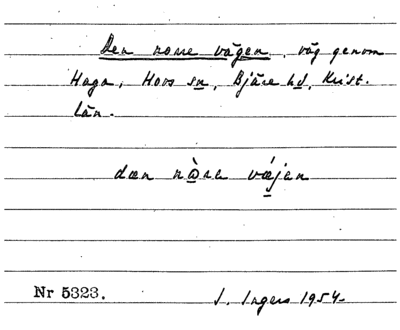 Den norre vägen, väg genom
Haga, Hovs sn, Bjäre hd, Krist.
län.
dæn nòre væjen
Nr 5323.
I. Ingers 1954